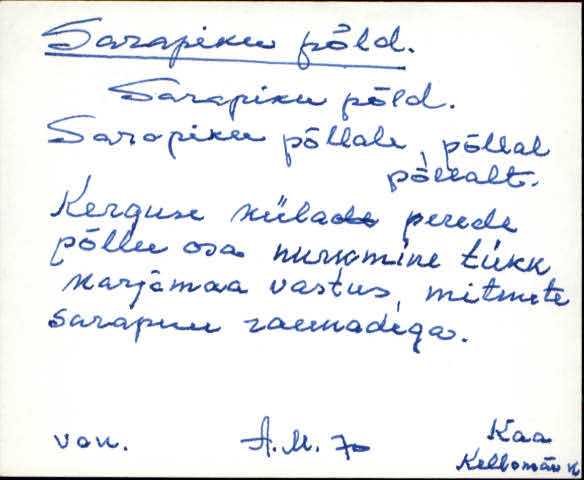 Sarapiku põld.
Sarapiku põld.
Sarapiku põllale, põllal
põllalt.
Kerguse külade perede
põllu osa nurkmine tükk
karjamaa vastus, mitmete
sarapuu raunadega.
van. A.M. 70 Kaa
Kellamäe k